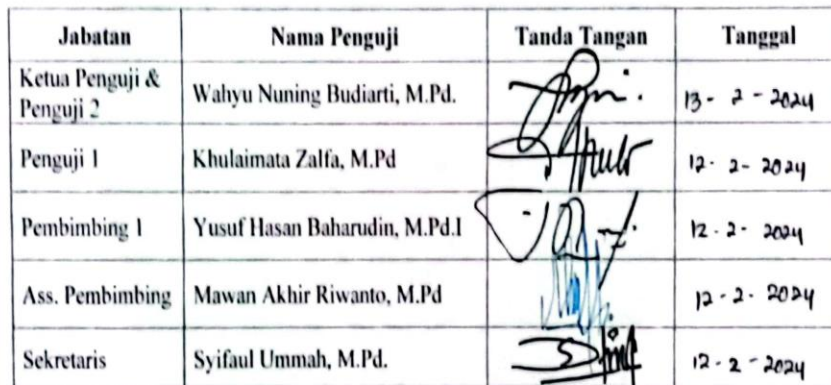 Jabatan Nama Penguji Tanda Tangan Tanggal
Ketua Penguji & Penguji 2 Wahyu Nuning Budiarti, M.Pd. 13 - 2 - 2024
Penguji 1 Khulaimata Zalfa, M.Pd 12 - 2 - 2024
Pembimbing 1 Yusuf Hasan Baharudin, M.Pd.I 12 - 2 - 2024
Ass. Pembimbing Mawan Akhir Riwanto, M.Pd 12 - 2 - 2024
Sekretaris Syifaul Ummah, M.Pd. 12 - 2 - 2024